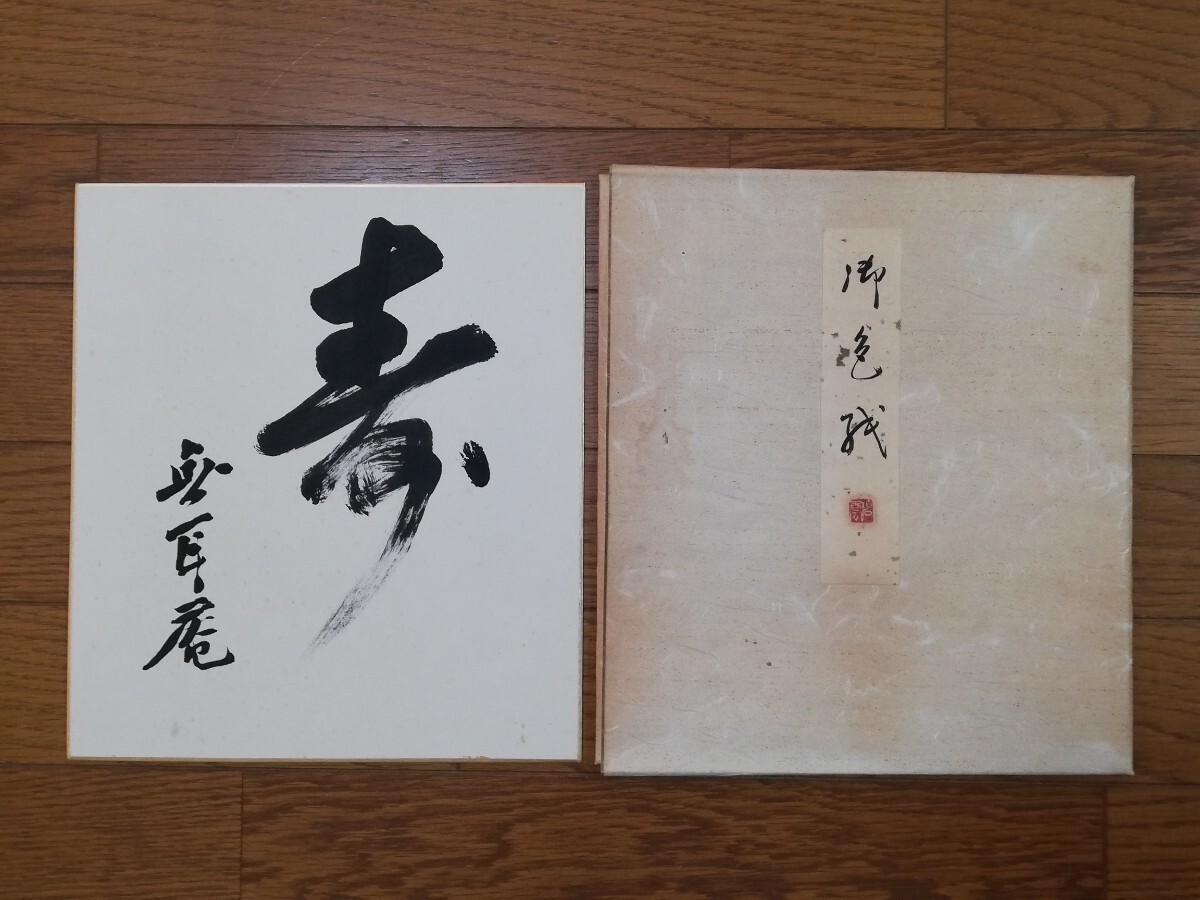 寿
無耳庵
御色紙